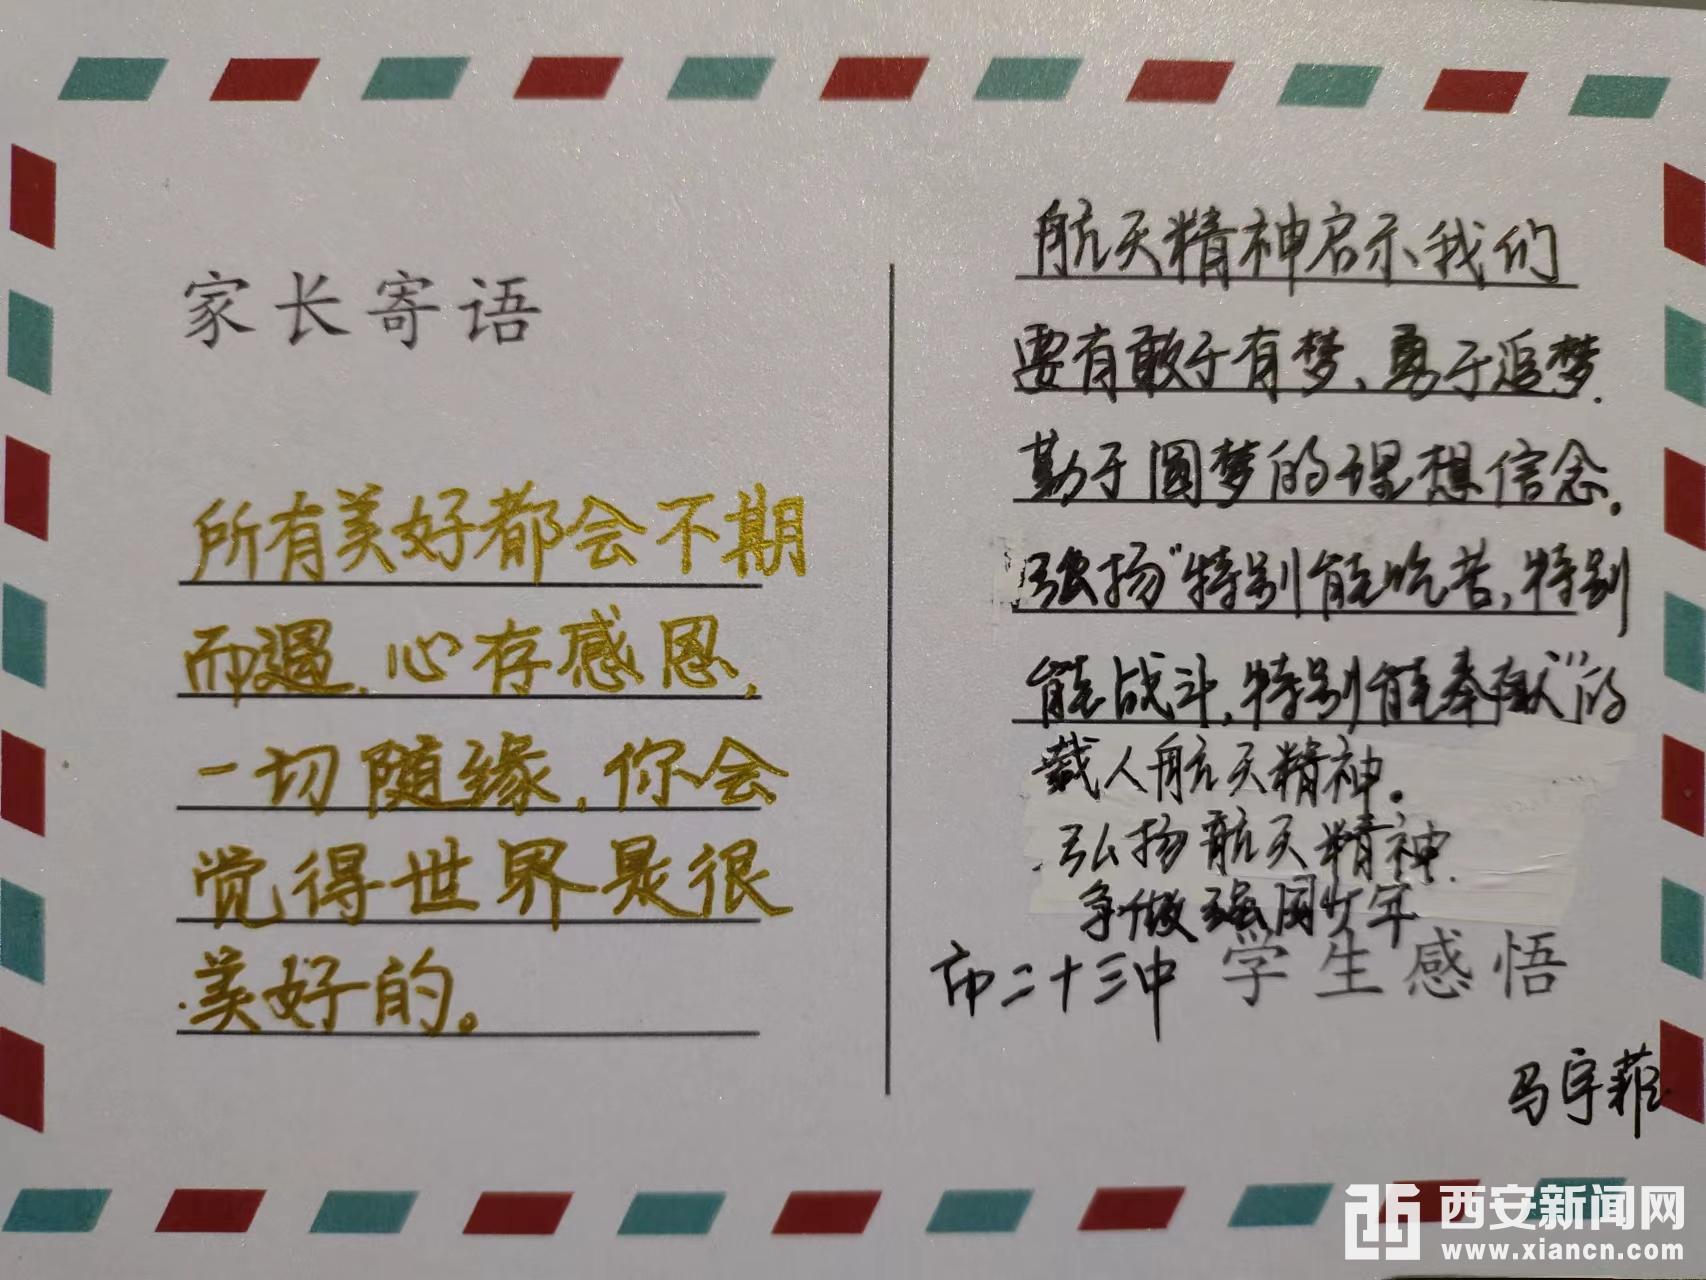 家长寄语
所有美好都会不期
而遇,心存感恩,
一切随缘,你会
觉得世界是很
美好的。
航天精神启示我们
要有敢于有梦、勇于追梦.
勤于圆梦的理想信念.
弘扬"特别能吃苦,特别
能战斗,特别能奉献"的
载人航天精神.
弘扬航天精神.
争做强国少年
市二十三中 学生感悟
马宇菲
西安新闻网
www.xiancn.com